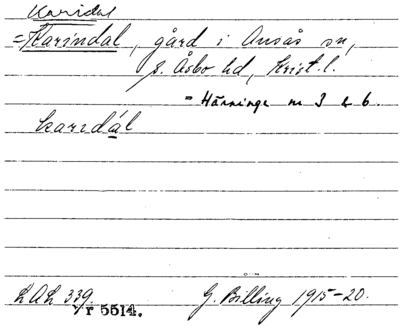 Karidal
=Karindal, gård i Onsås sn,
S. Åsbo hd, Krist. l.
= Härninge nr 3 & 6.
karıdál
LAL 339.
Yr 5514.
G. Billing 1915-20.